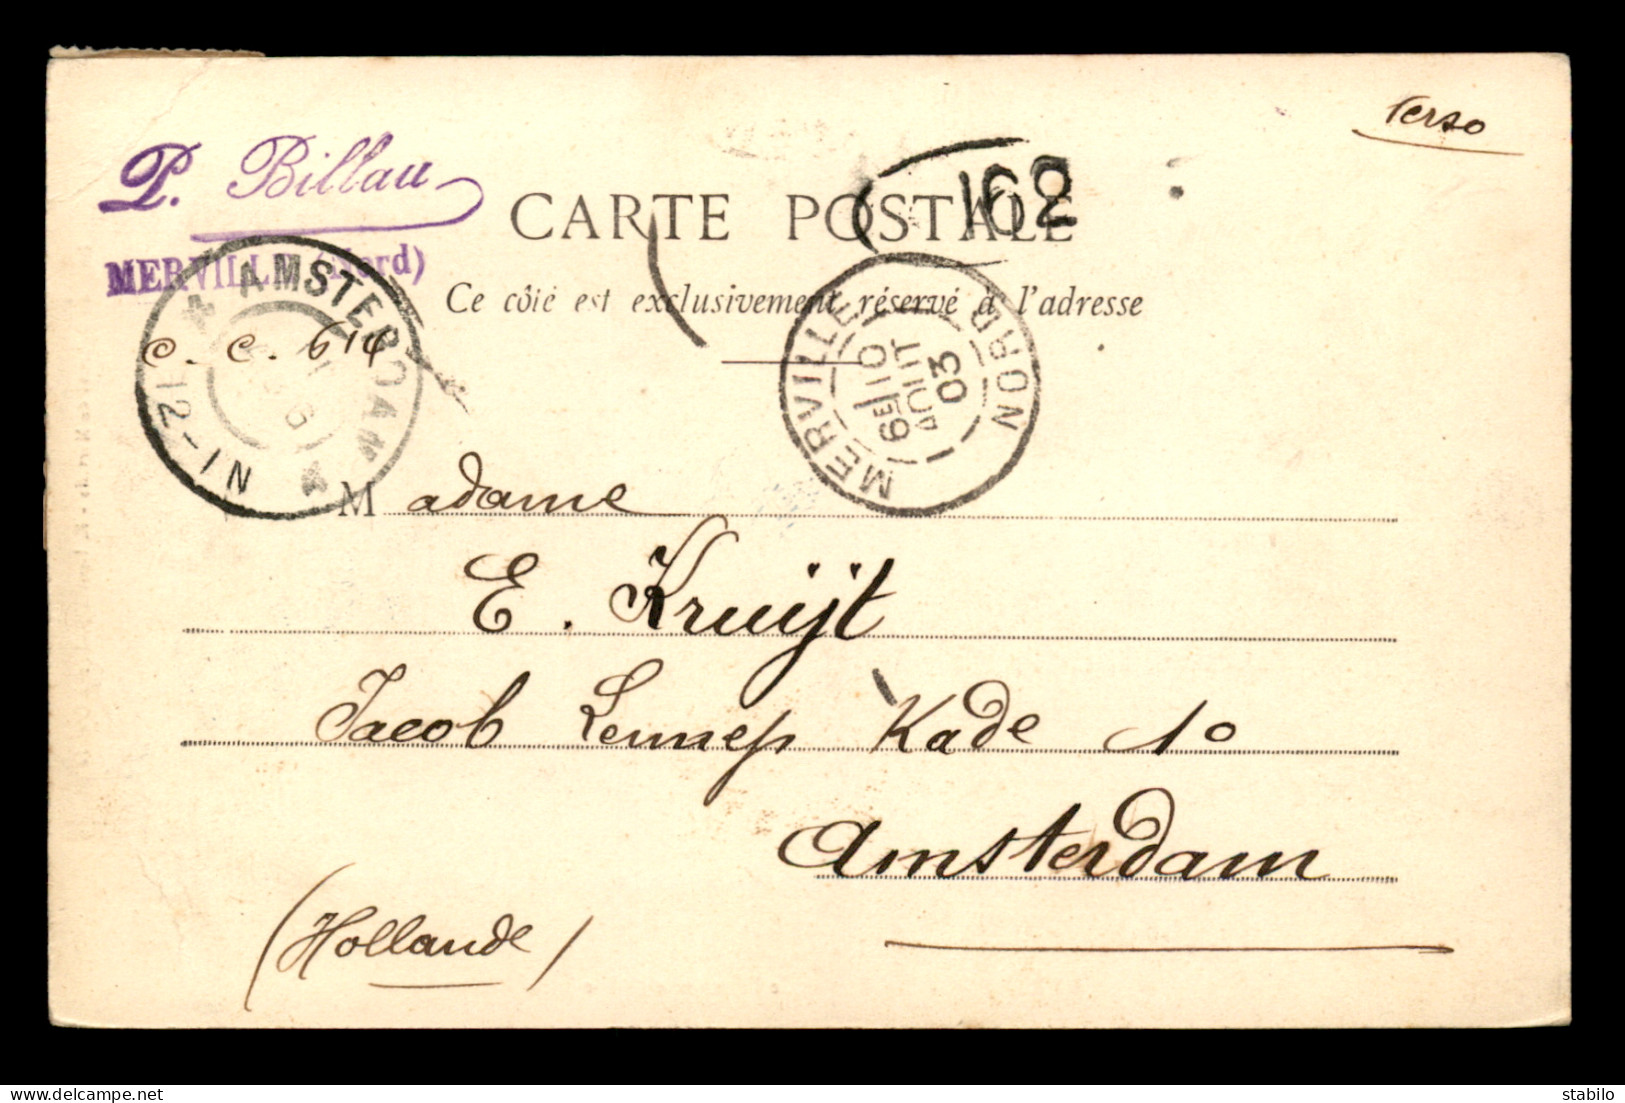 Verso
P. Billau
MERVILLE (Nord)
162
CARTE POSTALE
Ce côté est exclusivement réservé à l'adresse
AMSTERDAM
12-1N
C. C. 614
MERVILLE NORD
6E 10
AOUT
03
Madame
E. Kruijt
Jacob Lennep Kade 10
Amsterdam
(Hollande)
stabilo | delcampe.net